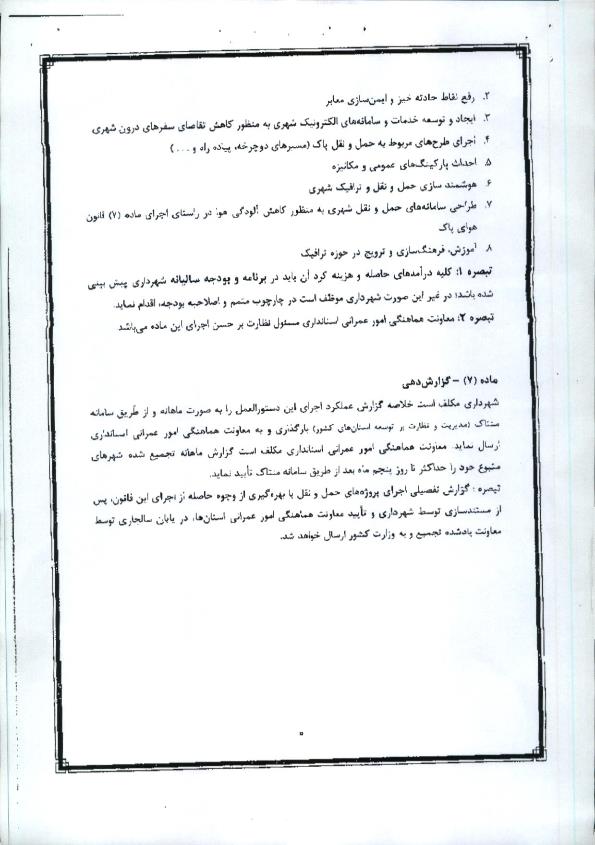 ۲. رفع نقاط حادثه خیز و ایمن‌سازی معابر
۳. ایجاد و توسعه خدمات و سامانه‌های الکترونیک شهری به منظور کاهش تقاضای سفرهای درون شهری
۴. اجرای طرح‌های مربوط به حمل و نقل پاک (مسیرهای دوچرخه، پیاده راه و ....)
۵. احداث پارکینگ‌های عمومی و مکانیزه
۶. هوشمند سازی حمل و نقل و ترافیک شهری
۷. طراحی سامانه‌های حمل و نقل شهری به منظور کاهش آلودگی هوا در راستای اجرای ماده (۷) قانون
هوای پاک
۸. آموزش، فرهنگ‌سازی و ترویج در حوزه ترافیک
تبصره ۱: کلیه درآمدهای حاصله و هزینه کرد آن باید در برنامه و بودجه سالیانه شهرداری پیش بینی
شده باشد؛ در غیر این صورت شهرداری موظف است در چارچوب متمم و اصلاحیه بودجه، اقدام نماید.
تبصره ۲: معاونت هماهنگی امور عمرانی استانداری مسئول نظارت بر حسن اجرای این ماده می‌باشد
ماده (۷) – گزارش‌دهی
شهرداری مکلف است خلاصه گزارش عملکرد اجرای این دستورالعمل را به صورت ماهانه و از طریق سامانه
منتاک (مدیریت و نظارت بر توسعه استان‌های کشور) بارگذاری و به معاونت هماهنگی امور عمرانی استانداری
ارسال نماید. معاونت هماهنگی امور عمرانی استانداری مکلف است گزارش ماهانه تجمیع شده شهرهای
متبوع خود را حداکثر تا روز پنجم ماه بعد از طریق سامانه منتاک تأیید نماید.
تبصره : گزارش تفصیلی اجرای پروژه‌های حمل و نقل با بهره‌گیری از وجوه حاصله از اجرای این قانون، پس
از مستندسازی توسط شهرداری و تأیید معاونت هماهنگی امور عمرانی استان‌ها، در پایان سالجاری توسط
معاونت یادشده تجمیع و به وزارت کشور ارسال خواهد شد.
۵